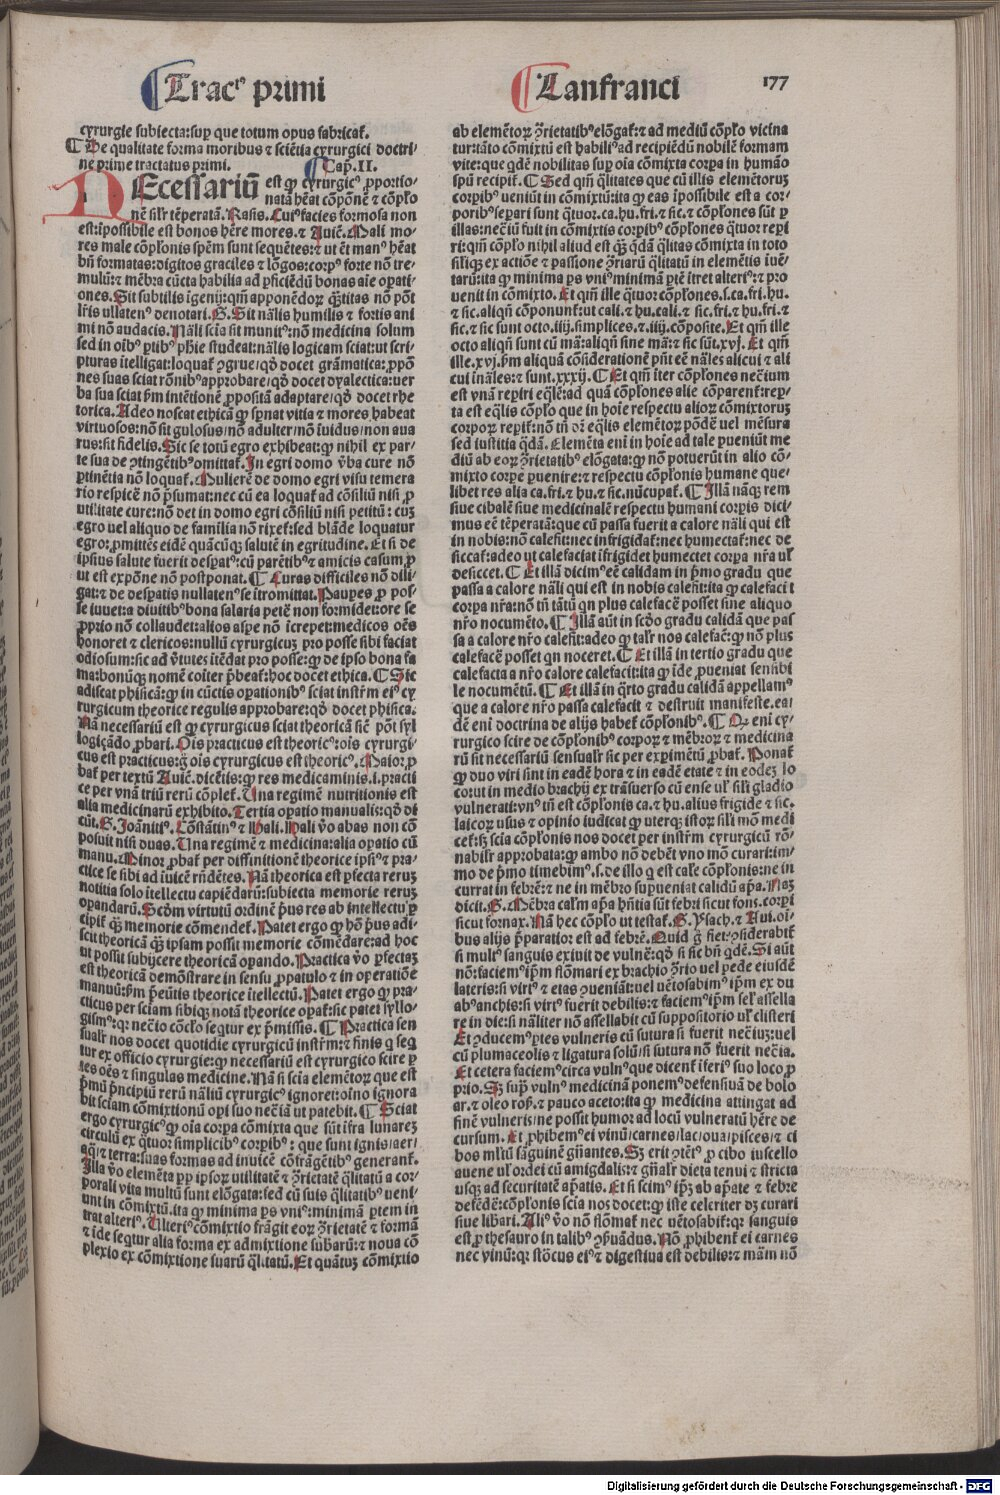 Trac⁹ primi
Lanfranci
177
cyrurgie subiecta:sup que totum opus fabricat̃.
¶ De qualitate forma moribus ⁊ sciẽtia cyrurgici doctri⸗
ne prime tractatus primi. ¶ Cap̃.II.
NEcessariũ est ꝙ cyrurgic⁹ ꝓpoꝛtio⸗
natã hẽat cõpõnẽ ⁊ cõplo
nẽ sil'r tẽperatã. Rasis. Cui⁹ facies formosa non
est:ĩpossibile est bonos hẽre mores.⁊ Auiẽ. Mali mo⸗
res male cõplonis spẽm sunt sequẽtes:⁊ ut ẽt man⁹ hẽat
bñ formatas:digitos graciles ⁊ lõgos:corp⁹ forte nõ tre⸗
mulũ:⁊ mẽbra cũcta habilia ad ꝑficiẽdũ bonas aĩe opati⸗
ones. Sit subtilis igenij:qm̃ apponẽdoꝝ q̃titas nõ põt
lr̃is ullaten⁹ denotari. G. Sit nãlis humilis ⁊ fortis ani
mi nõ audacis. Nãli sciã sit munit⁹:nõ medicina solum
sed in oĩb⁹ ꝑtib⁹ phĩe studeat:nãlis logicam sciat:ut scri⸗
pturas ĩtelligat:loquat̃ ꝯgrue/qð docet grãmatica:ꝓpõ
nes suas sciat rõnib⁹ approbare/qð docet dyalectica:uer
ba sua sciat ꝑm ĩntẽtionẽ ꝓpositã adaptare/qð docet rhe
torica. Adeo noscat ethicã ꝙ spnat vitia ⁊ mores habeat
virtuosos:nõ sit gulosus/nõ adulter/nõ ĩuidus/nõ aua
rus:sit fidelis. Sic se totũ egro exhibeat:ꝙ nihil ex par⸗
te sua de ꝯtingẽtib⁹ omittat̃. In egri domo v̾ba cure nõ
ꝑtinẽtia nõ loquat̃. Mulierẽ de domo egri visu temera
rio respicẽ nõ p̃sumat:nec cũ ea loquat̃ ad cõsiliũ nisi ꝓ
utilitate cure:nõ det in domo egri cõsiliũ nisi petitũ: cuꝫ
egro uel aliquo de familia nõ rixet̃:sed blãde loquatur
egro:ꝓmittẽs eidẽ quãcũqꝫ salutẽ in egritudine. Et si de
ipsius salute fuerit despat⁹:cũ parẽtib⁹ ⁊ amicis casum ꝓ
ut est expõne nõ postponat. ¶ Curas difficiles nõ dili⸗
gat:⁊ de despatis nullaten⁹ se ĩtromittat. Paupes ꝓ pos⸗
se iuuet:a diuitib⁹ bona salaria petẽ non formidet:ore se
ꝓprio nõ collaudet:alios aspe nõ ĩcrepet:medicos oẽs
honoret ⁊ clericos:nullũ cyrurgicuꝫ pro posse sibi faciat
odiosum:sic ad v̾tutes ĩtẽdat pro posse:ꝙ de ipso bona fa
ma:bonũqꝫ nomẽ cõiter p̃beat̃:hoc docet ethica. ¶ Sic
adiscat phisicã:ꝙ in cũctis opationib⁹ sciat instr̃m ei⁹ cy
rurgicum theorice regulis approbare:qð docet phisica.
Nã necessariũ est ꝙ cyrurgicus sciat theoricã sic̃ põt syl
logiçãdo ꝓbari. Oĩs practicus est theoric⁹:oĩs cyrurgi⸗
cus est practicus:g̃ oĩs cyrurgicus est theoric⁹. Maior ꝓ
bat̃ per textũ Auiẽ. dicẽtis:ꝙ res medicaminis .i. practi
ce per vnã triũ rerũ cõplet̃. Una regimẽ nutritionis est
alia medicinarũ exhibito. Tertia opatio manualis:qð di
cũt. G. Joãniti⁹. Cõstãtin⁹ ⁊ Hali. Hali v̾o abas non cõ
posuit nisi duas. Una regimẽ ⁊ medicina:alia opatio cũ
manu. Minor ꝓbat̃ per diffinitionẽ theorice ipsi⁹ ⁊ pra⸗
ctice se sibi ad ĩuicẽ rñdẽtes. Nã theorica est ꝑfecta reruꝫ
notitia solo ĩtellectu capiẽdarũ:subiecta memorie reruꝫ
opandarũ. Scðm virtutũ ordinẽ p̃us res ab intellectu ꝑ
cipit̃ qꝫ memorie cõmendet̃. Patet ergo ꝙ hõ p̃us adi⸗
scit theoricã qꝫ ipsam possit memorie cõmẽdare:ad hoc
ut possit subijcere theoricã opando. Practica v̾o ꝑfectaꝫ
est theoricã demõstrare in sensu ꝓpatulo ⁊ in opetiõe
manuũ:ꝑm p̃eũtis theorice ĩtellectũ. Patet ergo ꝙ pra⸗
cticus per sciam sibiqꝫ notã theorice opat̃:sic patet syllo⸗
gism⁹:qꝛ nec̃io cõclo seqtur ex p̃missis. ¶ Practica sen
sual'r nos docet quotidie cyrurgicũ instr̃m:⁊ finis q seq
tur ex officio cyrurgie:ꝙ necessariũ est cyrurgico scire ꝑ
tes oẽs ⁊ singulas medicine. Nã si sciã elemẽtoꝝ que est
p̃mũ p̃ncipiũ rerũ nãliũ cyrurgic⁹ ignoret:oĩno ignora
bit sciam cõmixtionũ opi suo nec̃iã ut patebit. ¶ Sciat
ergo cyrurgic⁹ ꝙ oĩa corpa cõmixta que sũt ĩfra lunarez
circulũ ex q̃tuor simplicib⁹ corpib⁹: que sunt ignis/aer/
aq̃/⁊ terra:suas formas ad inuicẽ cõfrãgẽtib⁹ generant̃.
Illa v̾o elemẽta ꝑp ipsoꝝ utilitatẽ ⁊ ꝯrietatẽ q̃litatũ a cor⸗
porali vita multũ sunt elõgata:sed cũ suis q̃litatib⁹ ueni⸗
unt in cõmixtũ.ita ꝙ minima ps vni⁹:minimã ꝑtem in
trat alteri⁹. Ulteri⁹ cõmixtio frãgit eoꝝ ꝯrietatẽ ⁊ formã
⁊ ĩde seqtur alia forma ex admixtione subarũ:⁊ noua cõ
plexio ex cõmixtione suarũ q̃litatũ. Et quãtuꝫ cõmixtio
ab elemẽtoꝝ ꝯrietatib⁹ elõgat̃:⁊ ad mediũ cõplo vicina
tur:tãto cõmixtũ est habili⁹ ad recipiẽdũ nobilẽ formam
vite:que qdẽ nobilitas sup oĩa cõmixta corpa in humão
spũ recipit̃. ¶ Sed qm̃ q̃litates que cũ illis elemẽtoruꝫ
corpib⁹ ueniũt in cõmixtũ:ita ꝙ eas ĩpossibile est a cor⸗
porib⁹ separi sunt q̃tuor.ca.hu.fri.⁊ sic.⁊ cõplones sũt ꝑ
illas:nec̃iũ fuit in cõmixtis corpib⁹ cõplones q̃tuor repi
ri:qm̃ cõplo nihil aliud est qꝫ q̃dã q̃litas cõmixta in toto
sil'iqꝫ ex actiõe ⁊ passione ꝯriarũ q̃litatũ in elemẽtis iuẽ⸗
tarũ:ita ꝙ minima ps vni⁹ minimã ꝑtẽ ĩtret alteri⁹:⁊ pro
uenit in cõmixto. Et qm̃ ille q̃tuor cõplones.s.ca.fri.hu.
⁊ sic.aliqñ cõponunt̃:ut cali.⁊ hu.cali.⁊ sic.fri.⁊ hu.fri.⁊
sic.⁊ sic sunt octo.iiij.simplices.⁊.iiij.cõposite. Et qm̃ ille
octo aliqñ sunt cũ mã:aliqñ sine mã:⁊ sic sũt.xvj. Et qm̃
ille.xvj.ꝑm aliquã cõsiderationẽ pñt eẽ nãles alicui ⁊ ali
cui ĩnãles:⁊ sunt.xxxij. ¶ Et qm̃ ĩter cõplones nec̃ium
est vnã repiri eq̃lẽ:ad quã cõplones alie cõparent̃:rep⸗
ta est eq̃lis cõplo que in hoĩe respectu alioꝝ cõmixtoruꝫ
corpoꝝ repit̃:nõ tñ dr̃ eq̃lis elemẽtoꝝ põdẽ uel mẽsura
sed iustitia q̃dã. Elemẽta eni in hoĩe ad tale ꝑueniũt me
diũ ab eoꝝ ꝯrietatib⁹ elõgata:ꝙ nõ potuerũt in alio cõ⸗
mixto corpe ꝑuenire:⁊ respectu cõplonis humane que⸗
libet res alia ca.fri.⁊ hu.⁊ sic.nũcupat̃. ¶ Illã nãqꝫ rem
siue cibalẽ siue medicinalẽ respectu humani corpis dici⸗
mus eẽ tẽperatã:que cũ passa fuerit a calore nãli qui est
in nobis:nõ calefit:nec infrigidat̃:nec humectat̃:nec de
siccat̃:adeo ut calefaciat ĩfrigidet humectet corpa nr̃a ul'
desiccet. ¶ Et illã dicim⁹ eẽ calidam in p̃mo gradu que
passa a calore nãli qui est in nobis calefit:ita ꝙ calefacit
corpa nr̃a:nõ tñ tãtũ qn plus calefacẽ posset sine aliquo
nr̃o nocumẽto. ¶ Illã aũt in scðo gradu calidã que pas
sa a calore nr̃o calefit:adeo ꝙ tal'r nos calefac̃:ꝙ nõ plus
calefacẽ posset qn noceret. ¶ Et illã in tertio gradu que
calefacta a nr̃o calore calefacit:ita ꝙ ĩde ꝓueniat sensibi
le nocumẽtũ. ¶ Et illã in q̃rto gradu calidã appellam⁹
que a calore nr̃o passa calefacit ⁊ destruit manifeste.ea⸗
dẽ eni doctrina de alijs habet̃ cõplonib⁹. ¶ Qꝛ eni cy⸗
rurgico scire de cõplonib⁹ corpoꝝ ⁊ mẽbroꝝ ⁊ medicina
rũ sit necessariũ sensual'r sic per expimẽtũ ꝓbat̃. Ponat̃
ꝙ duo viri sint in eadẽ hora ⁊ in eadẽ etate ⁊ in eodeꝫ lo
co:ut in medio brachij ex trãsuerso cũ ense ul' sil'i gladio
vulnerati:vn⁹ tñ est cõplonis ca.⁊ hu.alius frigide ⁊ sic.
laicoꝝ usus ⁊ opinio iudicat ꝙ uterqꝫ istoꝝ sil'i mõ medi
cet̃:sꝫ sciã cõplonis nos docet per instr̃m cyrurgicũ rõ⸗
nabil'r approbata:ꝙ ambo nõ debẽt vno mõ curari:im⸗
mo de p̃mo timebim⁹.s.de illo q est cale cõplonis:ne in
currat in febrẽ:⁊ ne in mẽbro supueniat calidũ apa. Naꝫ
dicit. G. Mẽbra cal'm apa hñtia sũt febri sicut fons.corpi
sicut fornax. Nã hec cõplo ut testat̃. G. Ysach.⁊ Aui.oĩ⸗
bus alijs p̃paratior est ad febrẽ. Quid g̃ fiet:ꝯsiderabit̃
si mult⁹ sanguis exiuit de vulnẽ:qð si sic bñ q̃dẽ. Si aũt
nõ:faciem⁹ ip̃m flõmari ex brachio ꝯrio uel pede eiusdẽ
lateris:si viri⁹ ⁊ etas ꝯueniãt:uel uẽtosabim⁹ ip̃m ex du
ab⁹ anchis:si viri⁹ fuerit debilis:⁊ faciem⁹ ip̃m sel' assella
re in die:si nãliter nõ assellabit cũ suppositorio ul' clisteri
Et ꝯducem⁹ ꝑtes vulneris cũ sutura si fuerit nec̃iuꝫ:uel
cũ plumaceolis ⁊ ligatura solũ/si sutura nõ fuerit nec̃ia.
Et cetera faciem⁹ circa vuln⁹ que dicent̃ ĩferi⁹ suo loco ꝓ
prio. Sꝫ sup vuln⁹ medicinã ponem⁹ defensiuã de bolo
ar.⁊ oleo ros̃.⁊ pauco aceto:ita ꝙ medicina attingat ad
finẽ vulneris/ne possit humor ad locũ vulneratũ hẽre de
cursum. Et ꝓhibem⁹ ei vinũ/carnes/lac/oua/pisces/⁊ ci
bos ml'tũ sãguinẽ gñantes. Sꝫ erit ꝯtẽt⁹ ꝓ cibo iuscello
auene ul' ordei cũ amigdalis:⁊ gñal'r dieta tenui ⁊ stricta
usqꝫ ad securitatẽ apatis. Et si scim⁹ ipꝫ ab apate ⁊ febre
defẽdẽ:cõplonis sciã nos docet:ꝙ iste celeriter dꝫ curari
siue libari. Ali⁹ v̾o nõ flõmat̃ nec uẽtosabit̃:qꝛ sanguis
est ꝓ thesauro in talib⁹ ꝯseruãdus. Nõ ꝓhibent̃ ei carnes
nec vinũ:qꝛ stõcus ei⁹ ⁊ digestiua est debilis:⁊ mãm nõ
Digitalisierung gefördert durch die Deutsche Forschungsgemeinschaft - DFG